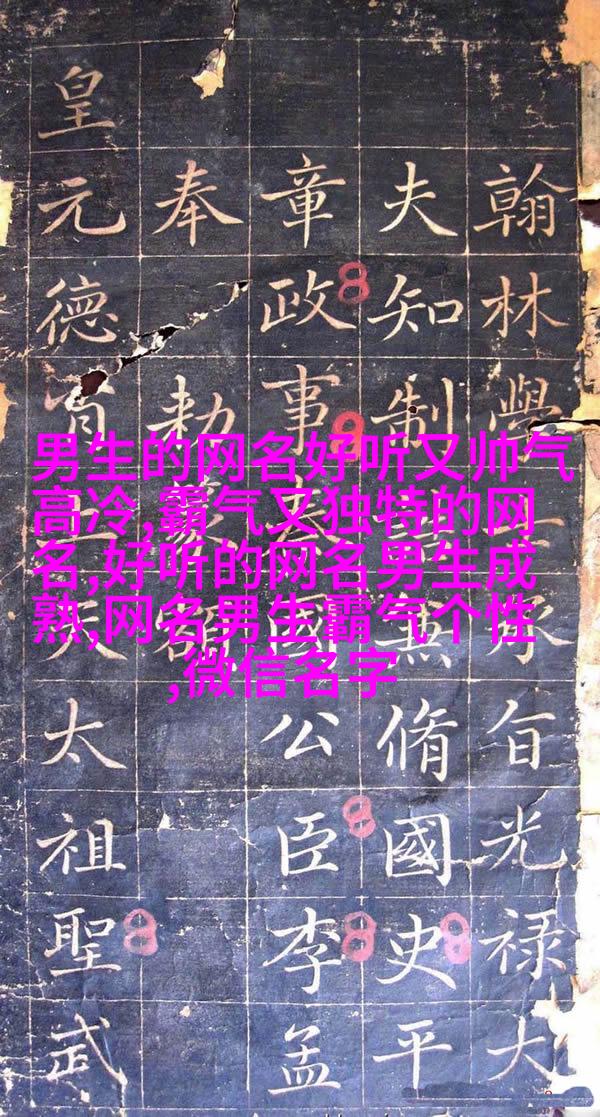 翰林學承旨光禄大
夫知制兼脩國史平
章政事秦國公臣李孟
奉勅
皇元德天太祖聖武
男生的网名好听又帅气
高冷,霸气又独特的网
名,好听的网名男生成
熟,网名男生霸气个性
,微信名字